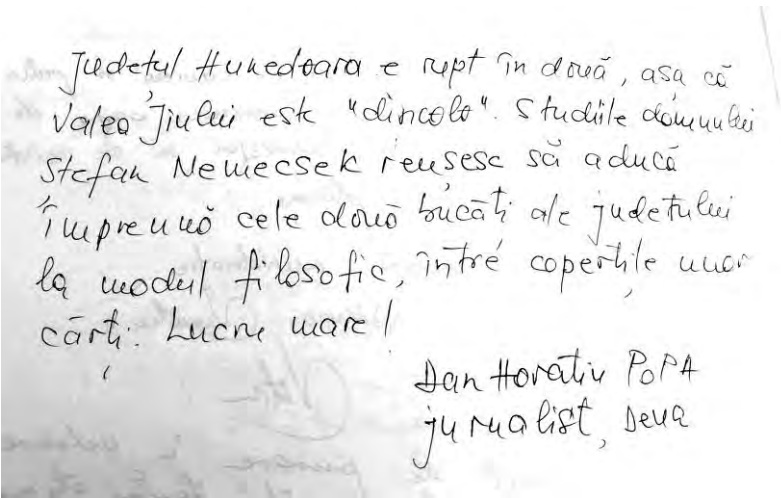 Județul Hunedoara e rupt în două, așa că
Valea Jiului este "dincolo". Studiile domnului
Stefan Nemecsek reusesc să aducă
împreună cele două bucăți ale județului
la modul filosofic, între coperțile unor
cărți. Lucru mare!
Dan Horatiu POPA
jurnalist, Deva